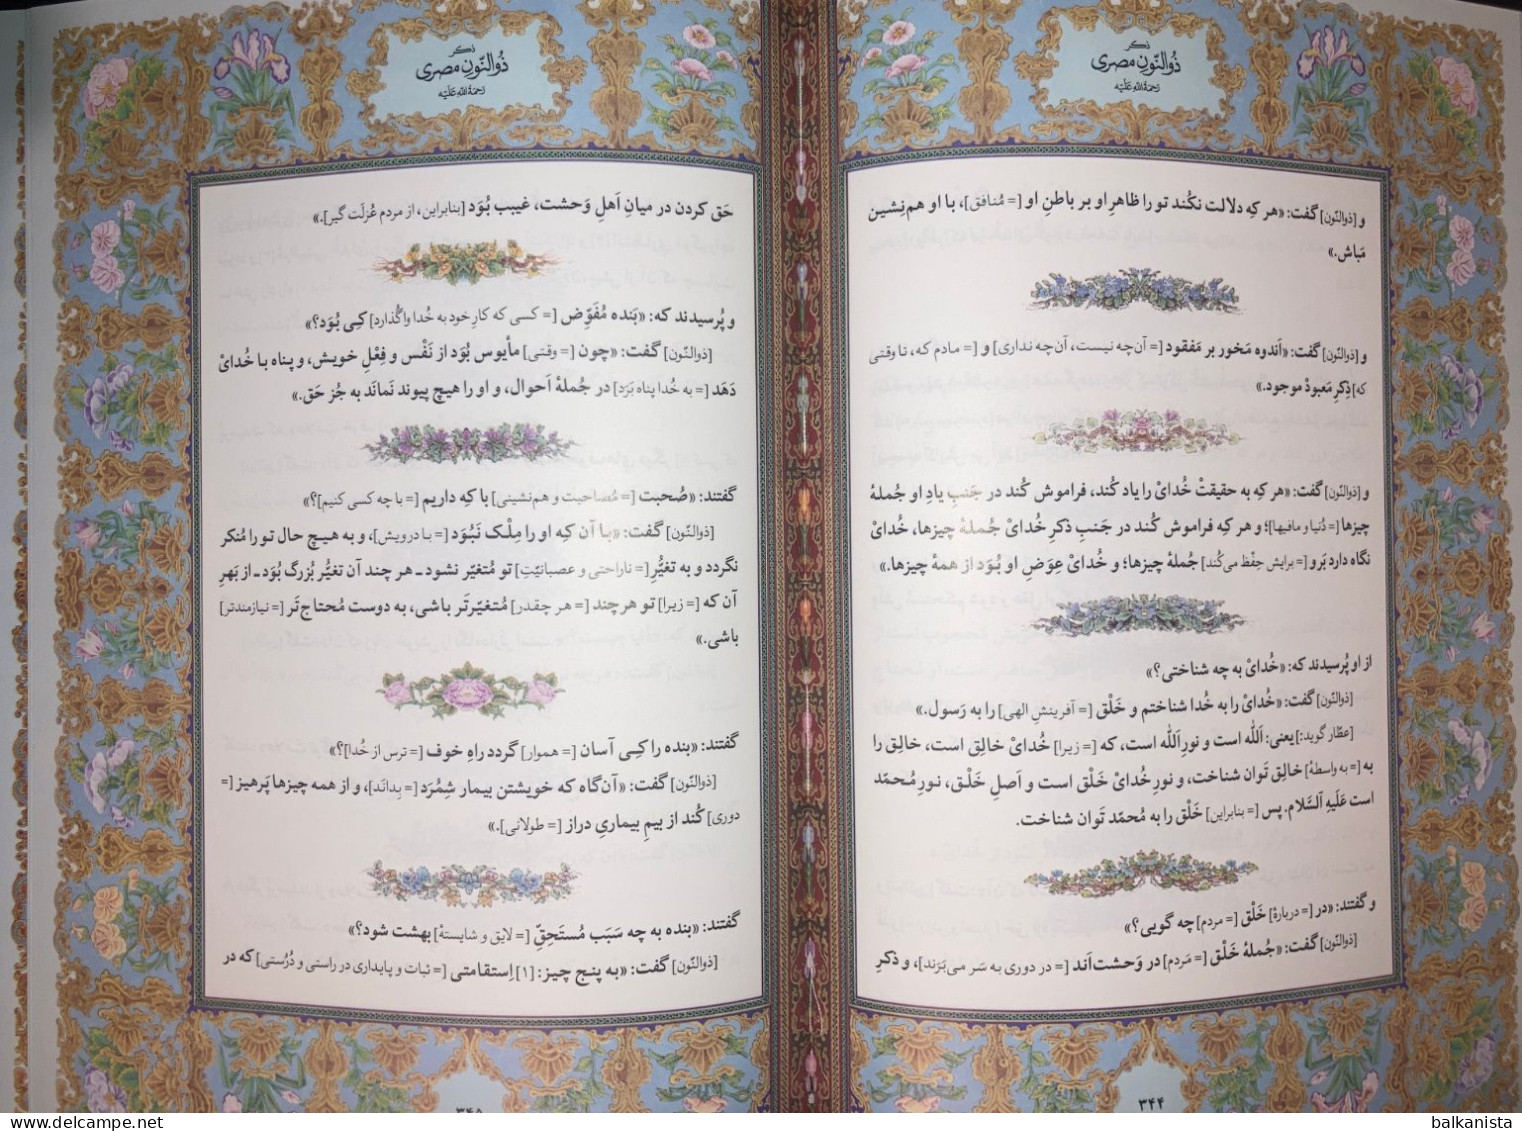 ذکر
ذُوالنّونِ مصری
رَحمَةُ اللهِ عَلَیْه
و [ذوالنّون] گفت: «هر کِه دلالت نکُند تو را ظاهرِ او بر باطنِ او [= مُنافق]، با او هم‌نِشین
مَباش.»
و [ذوالنّون] گفت: «اَندوه مَخور بر مَفقود [= آن‌چه نیست، آن‌چه نداری] و [= مادم که، تا وقتی
که] ذِکرِ مَعبودْ موجود.»
و [ذوالنّون] گفت: «هر کِه به حقیقتْ خُدایْ را یاد کُند، فراموش کُند در جَنبِ یادِ او جُملهٔ
چیزها [= دُنیا و مافیها]؛ و هر کِه فراموش کُند در جَنبِ ذکرِ خُدایْ جُملهٔ چیزها، خُدایْ
نگاه دارد بَرو [= برایش حِفْظ می‌کُند] جُملهٔ چیزها؛ و خُدایْ عِوَضِ او بُوَد از همهٔ چیزها.»
از او پُرسیدند که: «خُدایْ به چه شناختی؟»
[ذوالنّون] گفت: «خُدایْ را به خُدا شناختم و خَلْق [= آفرینشِ الهی] را به رَسول.»
[عطّار گوید:] یعنی: اَللّه است و نورِ اَللّه است، که [= زیرا] خُدایْ خالِق است، خالِق را
به [= به واسطهٔ] خالِق تَوان شناخت، و نورِ خُدایْ خَلْق است و اَصلِ خَلْق، نورِ مُحمّد
است عَلَیهِ السَّلام. پس [= بنابراین] خَلْق را به مُحمّد تَوان شناخت.
و گفتند: «در [= دربارهٔ] خَلْق [= مردم] چه گویی؟»
[ذوالنّون] گفت: «جُملهٔ خَلْق [= مَردم] در وَحشت‌اَند [= در دوری به سَر می‌بَرَند]، و ذکرِ
۳۴۴
ذکر
ذُوالنّونِ مصری
رَحمَةُ اللهِ عَلَیْه
حَق کردن در میانِ اَهلِ وَحشت، غیبب بُوَد [بنابراین، از مردم عُزلَت گیر].»
و پُرسیدند که: «بَنده مُفَوِّض [= کسی که کارِ خود به خُدا واگُذارد] کِی بُوَد؟»
[ذوالنّون] گفت: «چون [= وقتی] مأیوس بُوَد از نَفْس و فِعْلِ خویش، و پناه با خُدایْ
دَهَد [= به خُدا پناه بَرَد] در جُملهٔ اَحوال، و او را هیچ پیوند نَمانَد به جُز حَق.»
گفتند: «صُحبت [= مُصاحبت و هم‌نشینی] با کِه داریم [= با چه کسی کنیم]؟»
[ذوالنّون] گفت: «با آن کِه او را مِلْک نَبُوَد [= با درویش]، و به هیچ حال تو را مُنکر
نگردد و به تغیُّرِ [= ناراحتی و عصبانیّتِ] تو مُتغیّر نشود ـ هر چند آن تغیُّر بُزرگ بُوَد ـ از بَهرِ
آن که [= زیرا] تو هرچند [= هر چقدر] مُتغیّرتَر باشی، به دوست مُحتاج‌تَر [= نیازمندتر]
باشی.»
گفتند: «بنده را کِی آسان [= هموار] گردد راهِ خوف [= ترس از خُدا]؟»
[ذوالنّون] گفت: «آن‌گاه که خویشتن بیمار شِمُرَد [= بداند]، و از همه چیزها پَرهیز [=
دوری] کُند از بیمِ بیماریِ دراز [= طولانی].»
گفتند: «بنده به چه سَبَب مُستَحِقِّ [= لایق و شایستهٔ] بهشت شود؟»
[ذوالنّون] گفت: «به پنج چیز: [۱] اِستقامتی [= ثبات و پایداری در راستی و دُرُستی] که در
۳۴۵
delcampe.net
balkanista